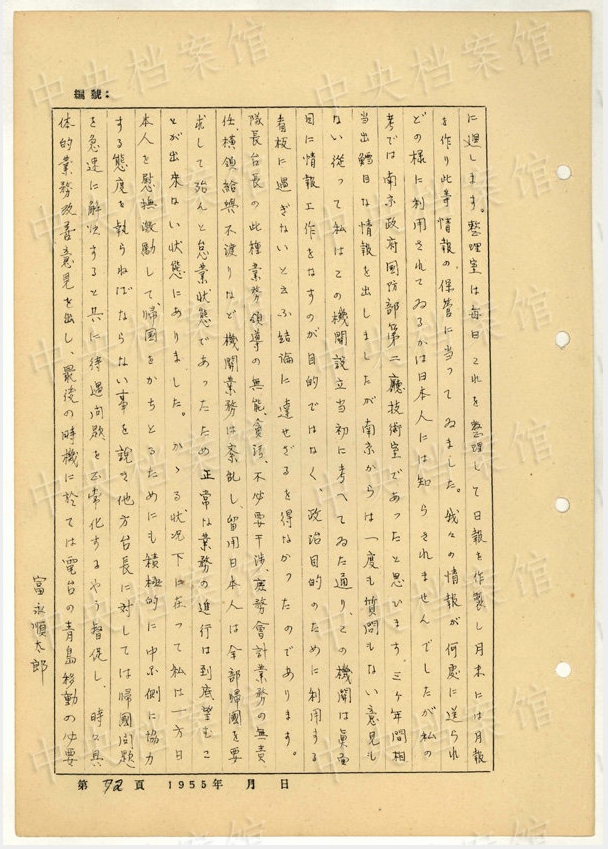 編號：
に過します。整理室は毎日これを整理して日報を作製し月末には月報
を作り此等情報の保管に当ってゐました。我々の情報が何處に送られ
どの様に利用されてゐるかは日本人には知らされませんでしたが私の
考では南京政府国防部第二廳技術室であったと思ひます。三ヶ年間相
当出鱈目な情報を出しましたが南京からは一度も質問もない意見も
ない従って私はこの機関設立当初に考へてゐた通り、この機関は真面
目に情報工作をなすのが目的ではなく、政治目的のために利用する
看板に過ぎないと云ふ結論に達せざるを得なかったのであります。
隊長台長の此種業務領導の無能、貪汚、不必要干渉、庶務會計業務の無責
任、横領給與不渡りなど機関業務は紊乱し、留用日本人は全部帰國を要
求して殆んと怠業状態であったため正常な業務の進行は到底望むこ
とが出来ない状態にありました。かゝる状況下に在って私は一方日
本人を慰撫激励して、帰国をかちとるためにも積極的に中国側に協力
する態度を執らねばならない事を說き他方台長に対しては帰國問題
を急速に解決すると共に待遇問題を正常化するやう督促し、時々具
体的業務改善意見を出し、最後の時機に於ては電台の青島移動の必要
富永順太郎
第 72 頁 1955年 月 日
中央档案馆